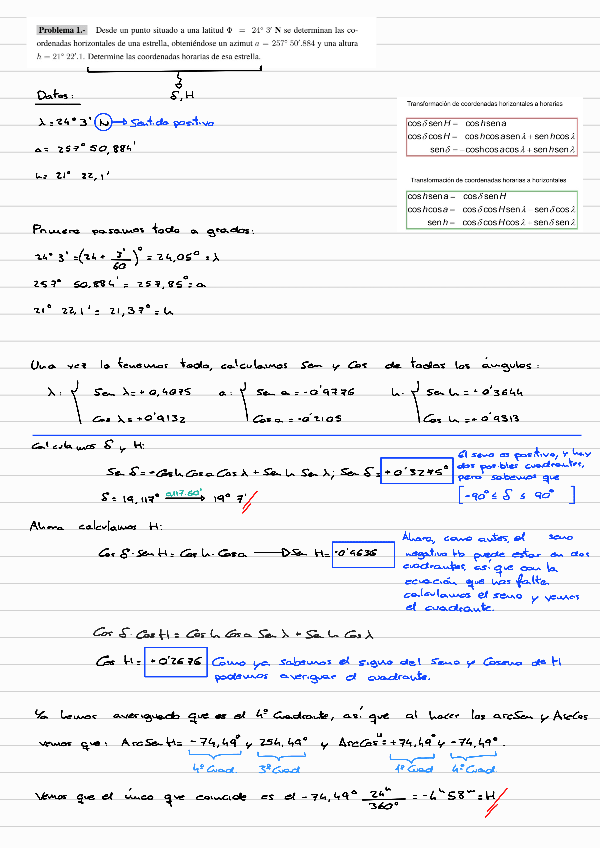 Problema 1.- Desde un punto situado a una latitud Φ = 24° 3' N se determinan las co-
ordenadas horizontales de una estrella, obteniéndose un azimut a = 257° 50'.884 y una altura
h = 21° 22'.1. Determine las coordenadas horarias de esa estrella.
δ, H
Datos:
λ = 24° 3' N → Sentido positivo
a = 257° 50,884'
h = 21° 22,1'
Transformación de coordenadas horizontales a horarias
cos δ sen H = cos h sen a
cos δ cos H = cos h cos a sen λ + sen h cos λ
sen δ = −cos h cos a cos λ + sen h sen λ
Transformación de coordenadas horarias a horizontales
cos h sen a = cos δ sen H
cos h cos a = cos δ cos H sen λ − sen δ cos λ
sen h = cos δ cos H cos λ + sen δ sen λ
Primero pasamos todo a grados:
24° 3' = (24 + 3'/60)° = 24,05° = λ
257° 50,884' = 257,85° = a
21° 22,1' = 21,37° = h
Una vez lo tenemos todo, calculamos Sen y Cos de todos los ángulos:
λ: { Sen λ = +0,4075 a: { Sen a = -0'9776 h: { Sen h = +0'3644
Cos λ = +0'9132 Cos a = -0'2105 Cos h = +0'9313
Calculamos δ y H:
Sen δ = -Cos h Cos a Cos λ + Sen h Sen λ; Sen δ = +0'3275°
δ = 19,117° 0,117·60' → 19° 7'
El seno es positivo, y hay
dos posibles cuadrantes,
pero sabemos que
[-90° ≤ δ ≤ 90°]
Ahora calculamos H:
Cos δ · Sen H = Cos h · Cos a → Sen H = -0'9636
Ahora, como antes, el seno
negativo tb puede estar en dos
cuadrantes, así que con la
ecuación que nos falta
calculamos el seno y vemos
el cuadrante.
Cos δ · Cos H = Cos h Cos a Sen λ + Sen h Cos λ
Cos H = +0'2676 Como ya sabemos el signo del Seno y Coseno de H
podemos averiguar el cuadrante.
Ya hemos averiguado que es el 4º Cuadrante, así que al hacer los arcSen y ArcCos
vemos que: ArcSen H = -74,49° y 254,49° y ArcCos H = +74,49° y -74,49°.
4º Cuad. 3º Cuad 1º Cuad 4º Cuad.
Vemos que el único que coincide es el -74,49° 24h/360° = -4h 58m = H